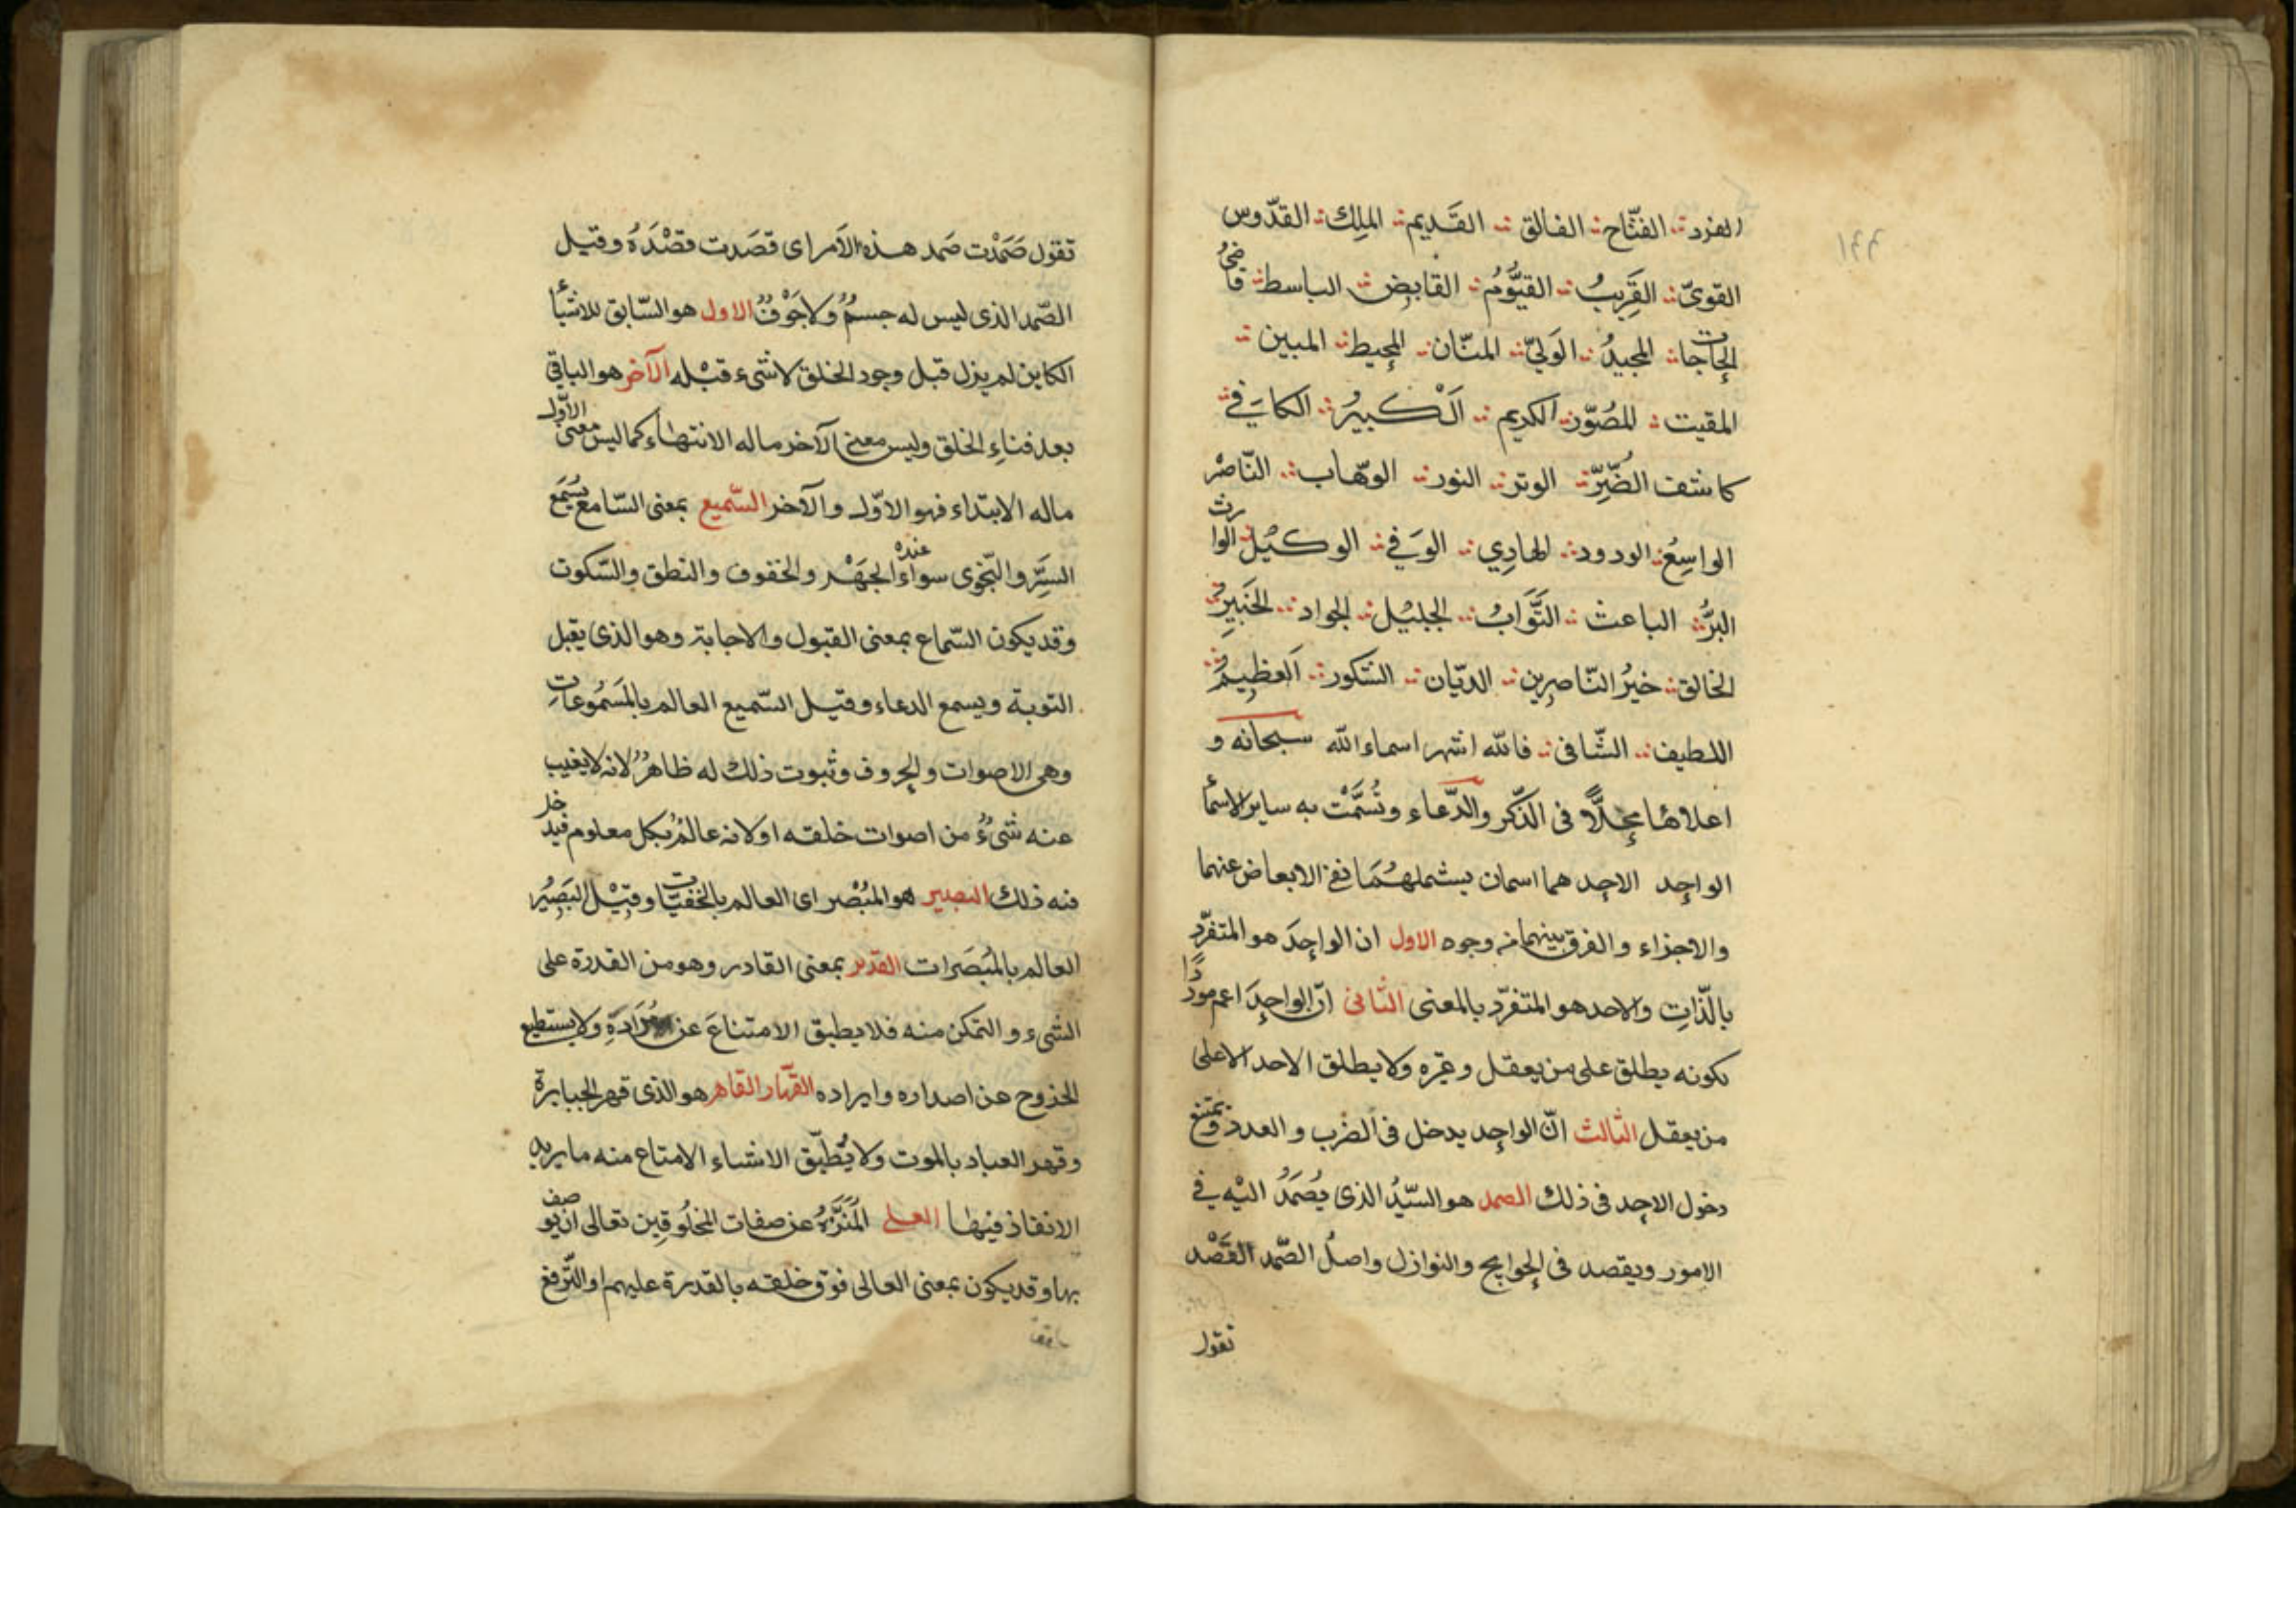 الفرد الفتّاح الفالق القَديم الملِك القدّوس
القوىّ القَرِيبُ القَيُّومُ القابِض الباسط قاضىُ
الحاجات المجيدُ الوَلىّ المنّان المحيط المبين
المقيت المُصَوّر الكريم الْكَبيرُ الكافى
كاشف الضُّرِّ الوتر النور الوهّاب النّاصر
الواسِعُ الودود الهادِي الوَفى الوكيْل الوارث
البرُّ الباعث التَّوّابُ الجليْل الجواد الخَبِير
الخالق خيرُ النّاصرِين الديّان الشكور العظِيمُ
اللطيف الشّافى فالله اشهر اسماء الله سبحانه و
اعلاها محلّاً فى الذّكر والدّعاء وتُسمَّتْ به ساير الاسماء
الواحِد الاحِد هما اسمان يشملهُمَا نفى الابعاض عنهما
والاجزاء والفرق بينهما من وجوه الاول ان الواحِدَ هو المتفرّد
بالذّاتِ والاحد هو المتفرّد بالمعنى الثانى انّ الواحِدَ اعم مورداً
لكونه يطلق على من يعقل وغيره ولا يطلق الاحد الا على
من يعقل الثالث انّ الواحِد يدخل فى الضرب والعدد ويمتنع
دخول الاحِد فى ذلك الصمد هو السّيّدُ الذى يُصمَدُ اليْه فى
الامور ويقصد فى الحوايج والنوازل واصلُ الصّمد القَصْد
تقول
١٤٤
تقول صَمَدْت صَمد هذه الاَمر اى قصَدت قصْدَهُ وقيل
الصّمد الذى ليس له جسمٌ ولا جَوْفٌ الاول هو السّابق للاشيأ
الكاين لم يزل قبل وجود الخلق لا شىء قبْله الآخر هو الباقى
بعد فناءِ الخلق وليس معنى الآخر ماله الانتهاء كما ليس معنى الاوّل
ماله الابتداء فهو الاوّل والآخر السّميع بمعنى السّامع يسْمَع
السِّرَّ والنّجوى سواءٌ عنده الجَهْر والخفوف والنطق والسّكوت
وقد يكون السّماع بمعنى القبول والاجابة وهو الذى يقبل
التوبة ويسمع الدعاء وقيل السّميع العالم بالمَسَمُوعاتِ
وهى الاصوات والحروف وثبوت ذلك له ظاهرٌ لانه لا يغيب
عنه شىءٌ من اصوات خلقه او لانه عالمٌ بكل معلوم فيدخل
فيه ذلك البصير هو المُبْصر اى العالم بالخفيّات وقيْل البَصِيْر
العالم بالمُبْصَرات القدير بمعنى القادر وهو من القدرة على
الشىء والتمكن منه فلا يطيق الامتناعَ عن مُرَادَهِ ولا يستطيع
الخروج عن اصداره وايراده القهّار القاهر هو الذى قهر الجبابرة
وقهر العباد بالموت ولا يُطيّق الاشياء الامتاع منه ما يريد
الانفاذ فيها العلى المُنَزَّهُ عن صفات المخلُوقين تعالى ان يوصف
بها وقد يكون بمعنى العالى فوق خلقه بالقدرة عليهم او الترفع